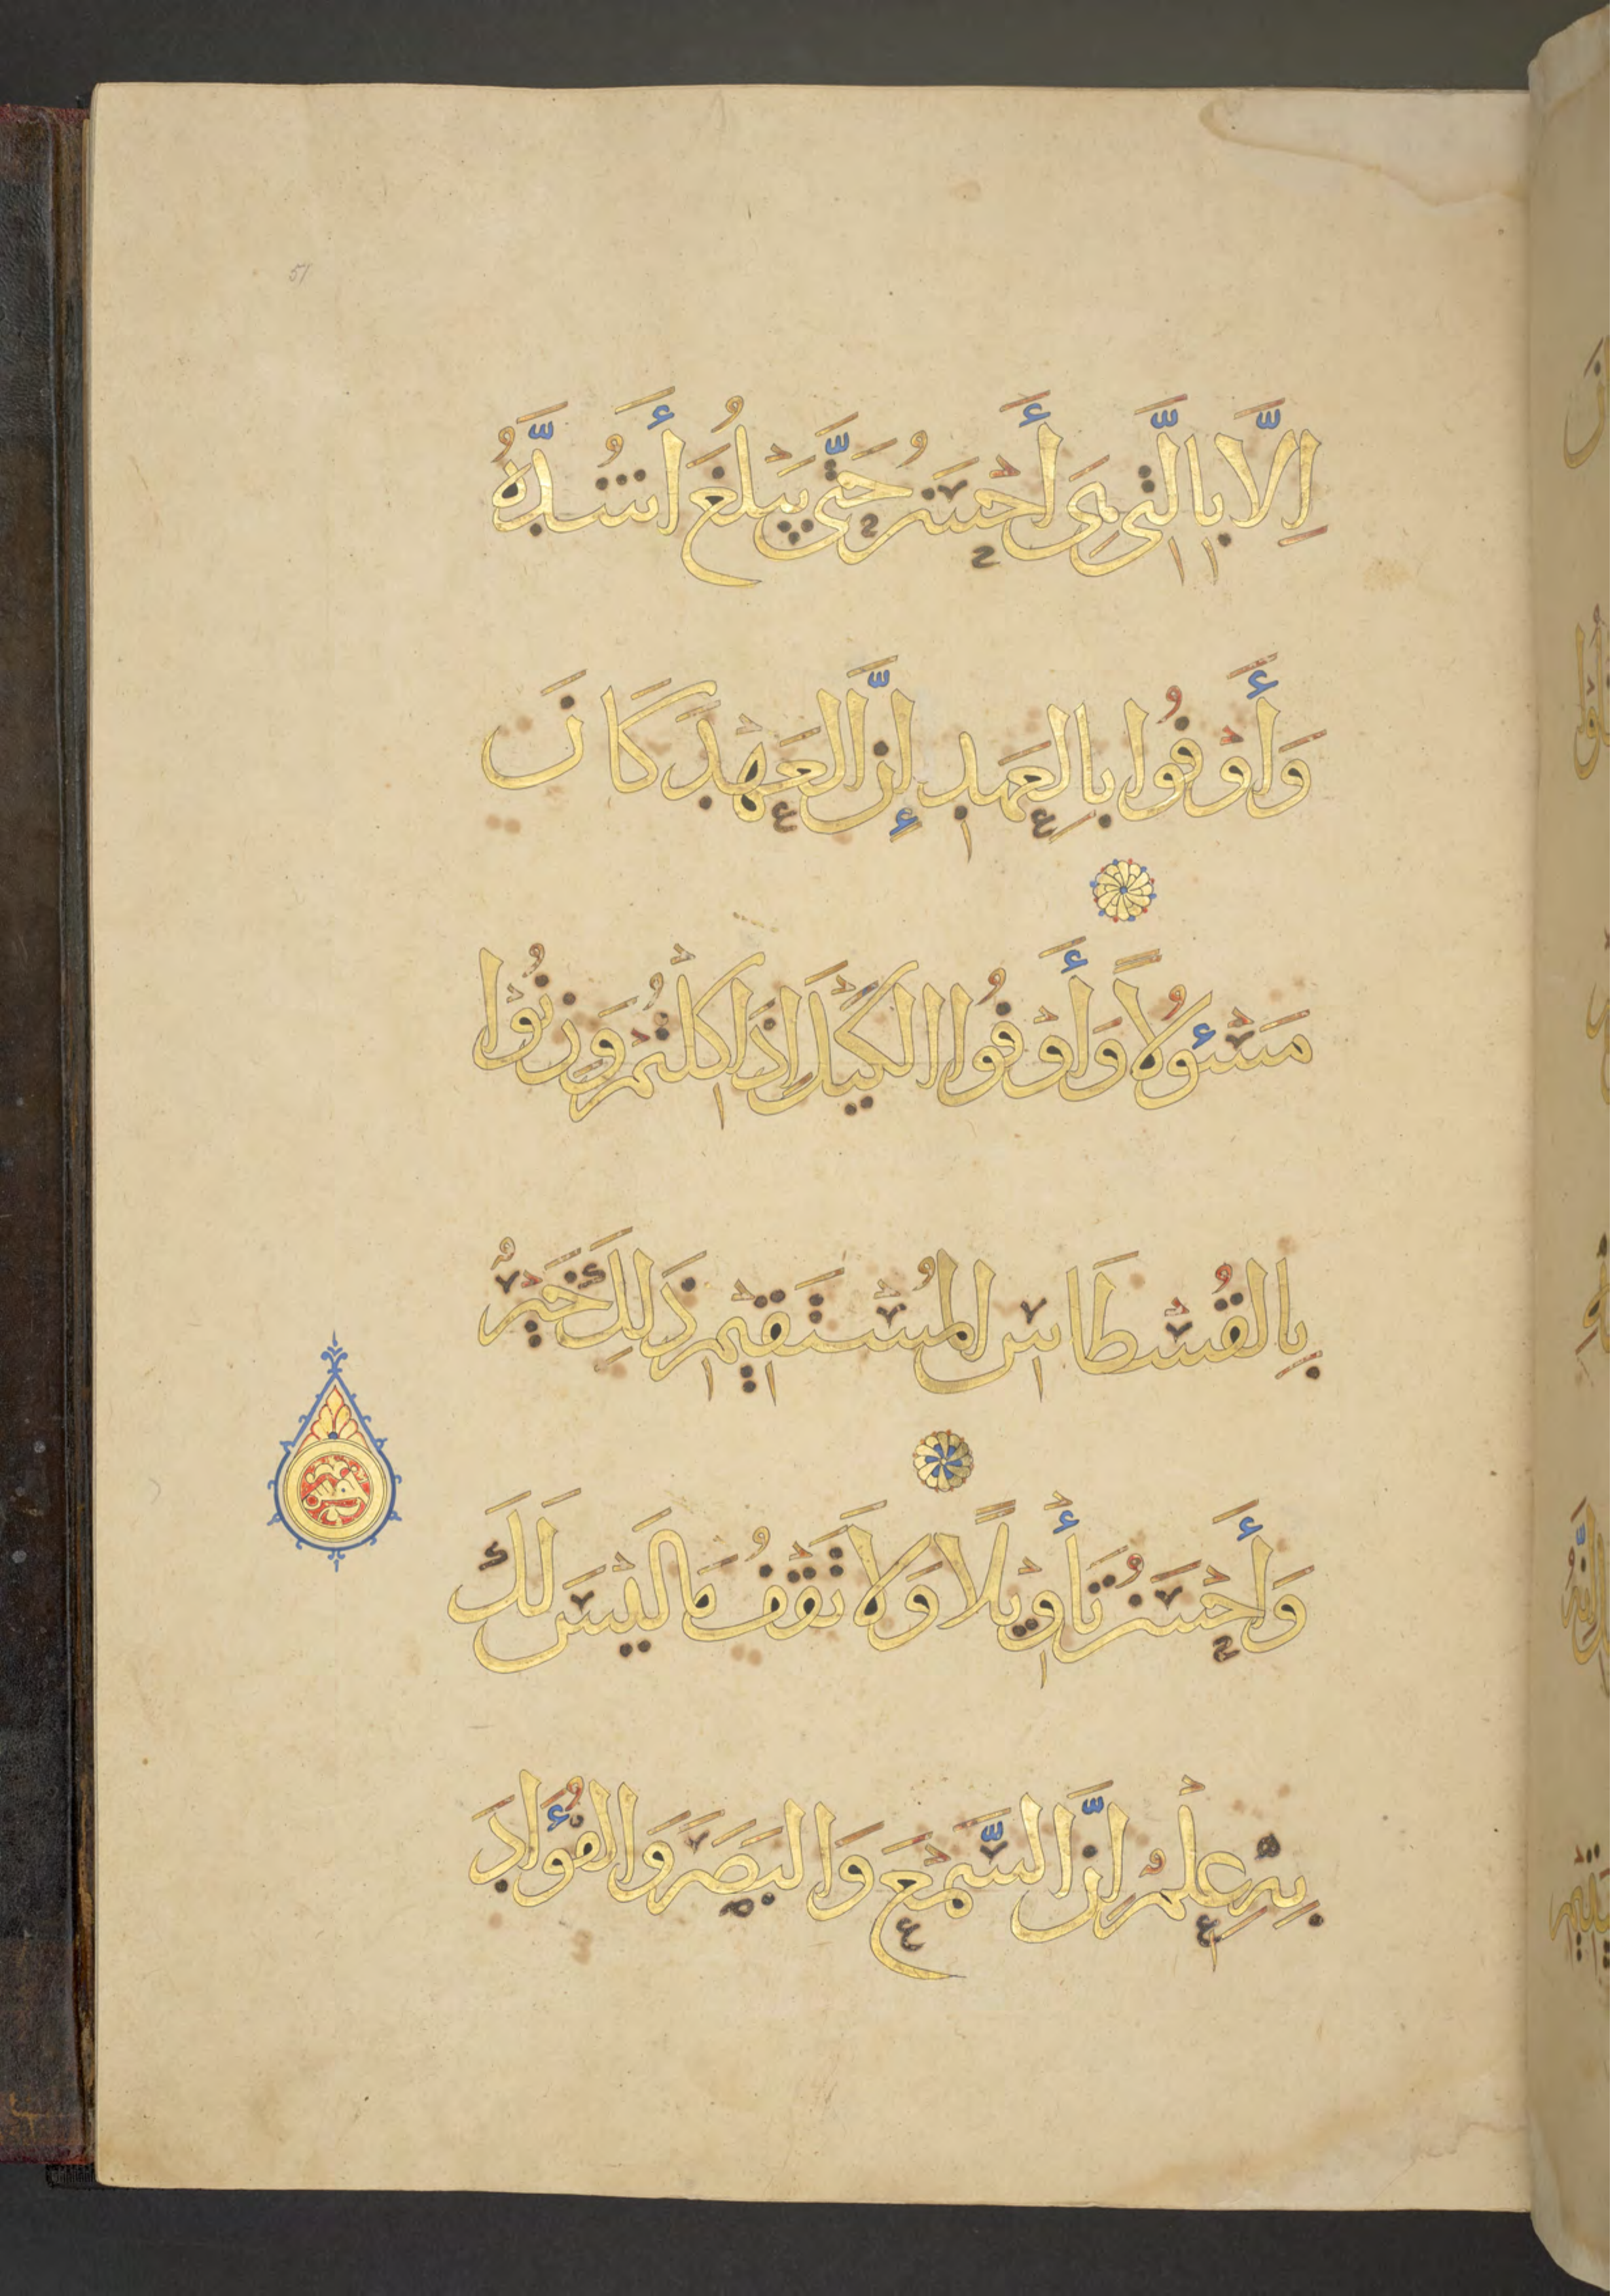 51
اِلَّا بِالَّتِي هِيَ أَحْسَنُ حَتَّى يَبْلُغَ أَشُدَّهُ
وَأَوْفُوا بِالعَهدِ إِنَّ العَهْدَ كَانَ
مَسْئُولاً وَأَوْفُوا الكَيْلَ اِذَا كِلْتُمْ وَزِنُوْا
بِالقُسْطَاسِ المُسْتَقِيْمِ ذَلِكَ خَيْرٌ
وَأَحْسَنُ تَأْوِيْلًا وَلَا تَقْفُ مَا لَيْسَ لَكَ
بِهِ عِلْمٌ اِنَّ السَّمْعَ وَالبَصَرَ وَالفُؤَادَ